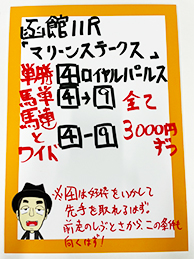 函館11R
「マリーンステークス」
単勝 4 ロイヤルパールス
馬単 4→9 全て
馬連 4-9 3000円
と
ワイド ずつ
※4は好枠をいかして
先手を取れるはず。
前走のしぶとさから、この条件も
向くはず!